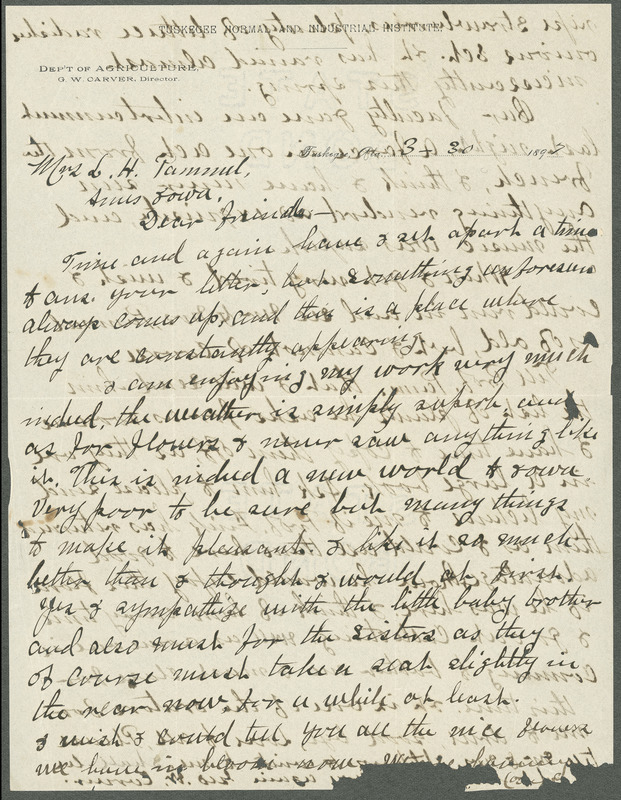 TUSKEGEE NORMAL AND INDUSTRIAL INSTITUTE.
DEP'T OF AGRICULTURE,
G. W. CARVER, Director.
Tuskegee, Ala., 3 + 30 1897
Mrs L. H. Pammel,
Ames Iowa.
Dear Friend:-
Time and again have I set apart a time
to ans. your letter, but something unforeseen
always comes up, and this is a place where
they are constantly appearing.
I am enjoying my work very much
indeed, the weather is simply superb, and
as for flowers I never saw anything like
it. This is indeed a new world to Iowa
Very poor to be sure but many things
to make it pleasant. I like it so much
better than I thought I would at first
Yes I sympathize with the little baby brother
and also must for the sisters as they
of course must take a seat slightly in
the rear now, for a while at least.
I wish I could tell you all the nice flowers
we have in bloom now.